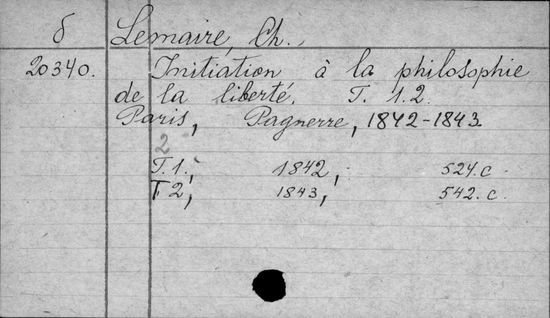 δ Lemaire, Ch.,
20340. Initiation à la philosophie
de la liberté. T. 1.2.
Paris, Pagnerre, 1842-1843
2
T. 1., 1842, 524.c.
T 2, 1843, 542.c.